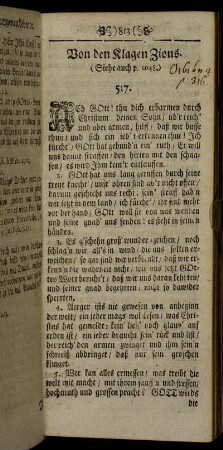 813
Von den Klagen Zions.
(Siehe auch p. 1048.)
517.
ACh GOtt! thu dich erbarmen durch
Christum deinen Sohn, üb'r reich'
und über armen, hilff, daß wir busse
thun; und sich ein jed'r erkennen thu! Ich
fürcht, GOtt hab gebund'n ein' ruth; Er will
uns damit straffen den hirten mit den schaa-
fen; es wird Ihm kein'r entlauffen.
2. GOtt hat uns lang geruffen durch seine
treue knecht: auf den ohr'n
darum geschicht uns recht. kein' straf hab'n
wir jetzt in dem land, ich fürcht', ihr sind mehr
vor der hand; GOtt woll sie von uns wenden
und seine gnad' uns senden! es stehet in sein'n
händen.
3. Es g'schehn groß wunder zeichen, noch
schlag'n wir all's in wind; die uns solten er-
weichen; so gar sind wir verblendt; daß wir er-
kenn'n die wahrheit nicht
tes Wort bericht't; daß wir uns daran kehrten;
und seiner gnad begehrten, nicht so dawider
sperrten.
4. Aerger ists nie gewesen von anbeginn
der welt; ein jeder mags wol lesen, was Chri-
stus hat gemeldt: kein' lieb' noch glaub' auf
erden ist; ein jeder braucht sein' rück und list;
der reich' den armen zwinget und ihm sein'n
schweiß abdringet, daß nur sein groschen
klinget.
5. Wer kan alles ermessen, was treibt die
welt mit macht, mit ihrem sauf'n und fressen,
hochmuth und grossen pracht; GOTT wird's
die